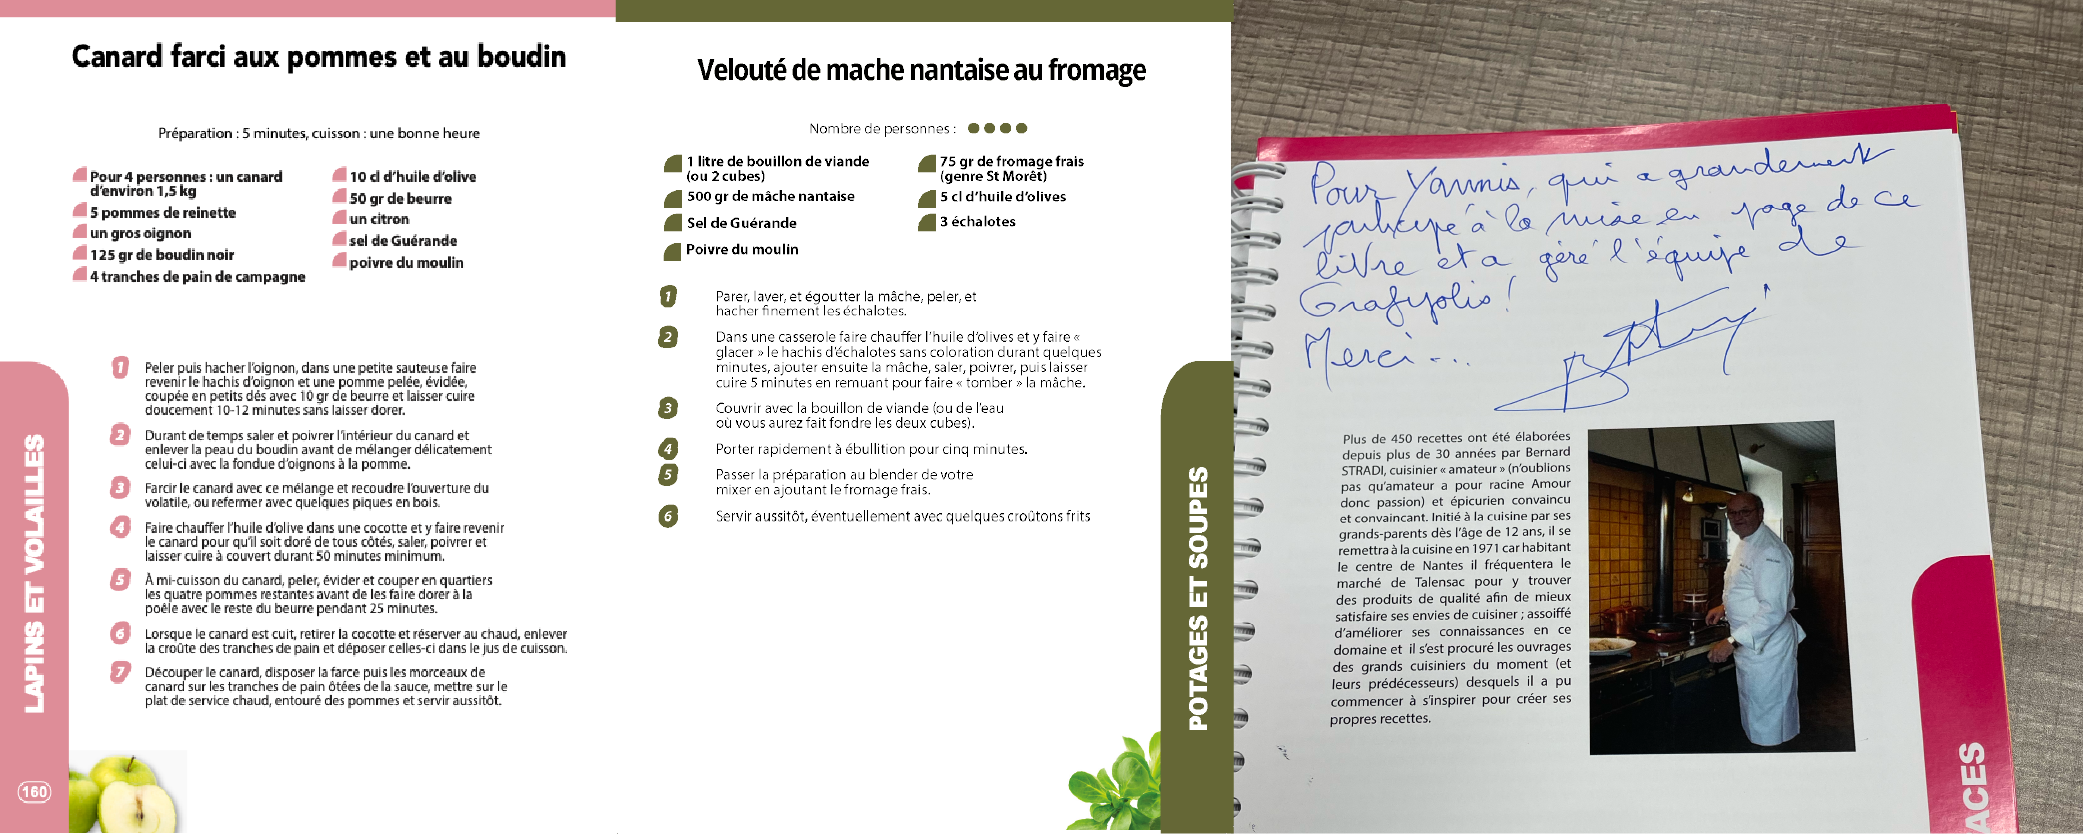 Canard farci aux pommes et au boudin
Préparation : 5 minutes, cuisson : une bonne heure
Pour 4 personnes : un canard
d'environ 1,5 kg
5 pommes de reinette
un gros oignon
125 gr de boudin noir
4 tranches de pain de campagne
10 cl d'huile d'olive
50 gr de beurre
un citron
sel de Guérande
poivre du moulin
1 Peler puis hacher l'oignon, dans une petite sauteuse faire
revenir le hachis d'oignon et une pomme pelée, évidée,
coupée en petits dés avec 10 gr de beurre et laisser cuire
doucement 10-12 minutes sans laisser dorer.
2 Durant de temps saler et poivrer l'intérieur du canard et
enlever la peau du boudin avant de mélanger délicatement
celui-ci avec la fondue d'oignons à la pomme.
3 Farcir le canard avec ce mélange et recoudre l'ouverture du
volatile, ou refermer avec quelques piques en bois.
4 Faire chauffer l'huile d'olive dans une cocotte et y faire revenir
le canard pour qu'il soit doré de tous côtés, saler, poivrer et
laisser cuire à couvert durant 50 minutes minimum.
5 À mi-cuisson du canard, peler, évider et couper en quartiers
les quatre pommes restantes avant de les faire dorer à la
poêle avec le reste du beurre pendant 25 minutes.
6 Lorsque le canard est cuit, retirer la cocotte et réserver au chaud, enlever
la croûte des tranches de pain et déposer celles-ci dans le jus de cuisson.
7 Découper le canard, disposer la farce puis les morceaux de
canard sur les tranches de pain ôtées de la sauce, mettre sur le
plat de service chaud, entouré des pommes et servir aussitôt.
LAPINS ET VOLAILLES
160
Velouté de mache nantaise au fromage
Nombre de personnes :
1 litre de bouillon de viande
(ou 2 cubes)
500 gr de mâche nantaise
Sel de Guérande
Poivre du moulin
75 gr de fromage frais
(genre St Morêt)
5 cl d'huile d'olives
3 échalotes
1 Parer, laver, et égoutter la mâche, peler, et
hacher finement les échalotes.
2 Dans une casserole faire chauffer l'huile d'olives et y faire «
glacer » le hachis d'échalotes sans coloration durant quelques
minutes, ajouter ensuite la mâche, saler, poivrer, puis laisser
cuire 5 minutes en remuant pour faire « tomber » la mâche.
3 Couvrir avec la bouillon de viande (ou de l'eau
où vous aurez fait fondre les deux cubes).
4 Porter rapidement à ébullition pour cinq minutes.
5 Passer la préparation au blender de votre
mixer en ajoutant le fromage frais.
6 Servir aussitôt, éventuellement avec quelques croûtons frits
POTAGES ET SOUPES
Pour Yannis, qui a grandement
participé à la mise en page de ce
livre et a géré l'équipe de
Grafypolis !
Merci...
Plus de 450 recettes ont été élaborées
depuis plus de 30 années par Bernard
STRADI, cuisinier « amateur » (n'oublions
pas qu'amateur a pour racine Amour
donc passion) et épicurien convaincu
et convaincant. Initié à la cuisine par ses
grands-parents dès l'âge de 12 ans, il se
remettra à la cuisine en 1971 car habitant
le centre de Nantes il fréquentera le
marché de Talensac pour y trouver
des produits de qualité afin de mieux
satisfaire ses envies de cuisiner ; assoiffé
d'améliorer ses connaissances en ce
domaine et il s'est procuré les ouvrages
des grands cuisiniers du moment (et
leurs prédécesseurs) desquels il a pu
commencer à s'inspirer pour créer ses
propres recettes.
ACES